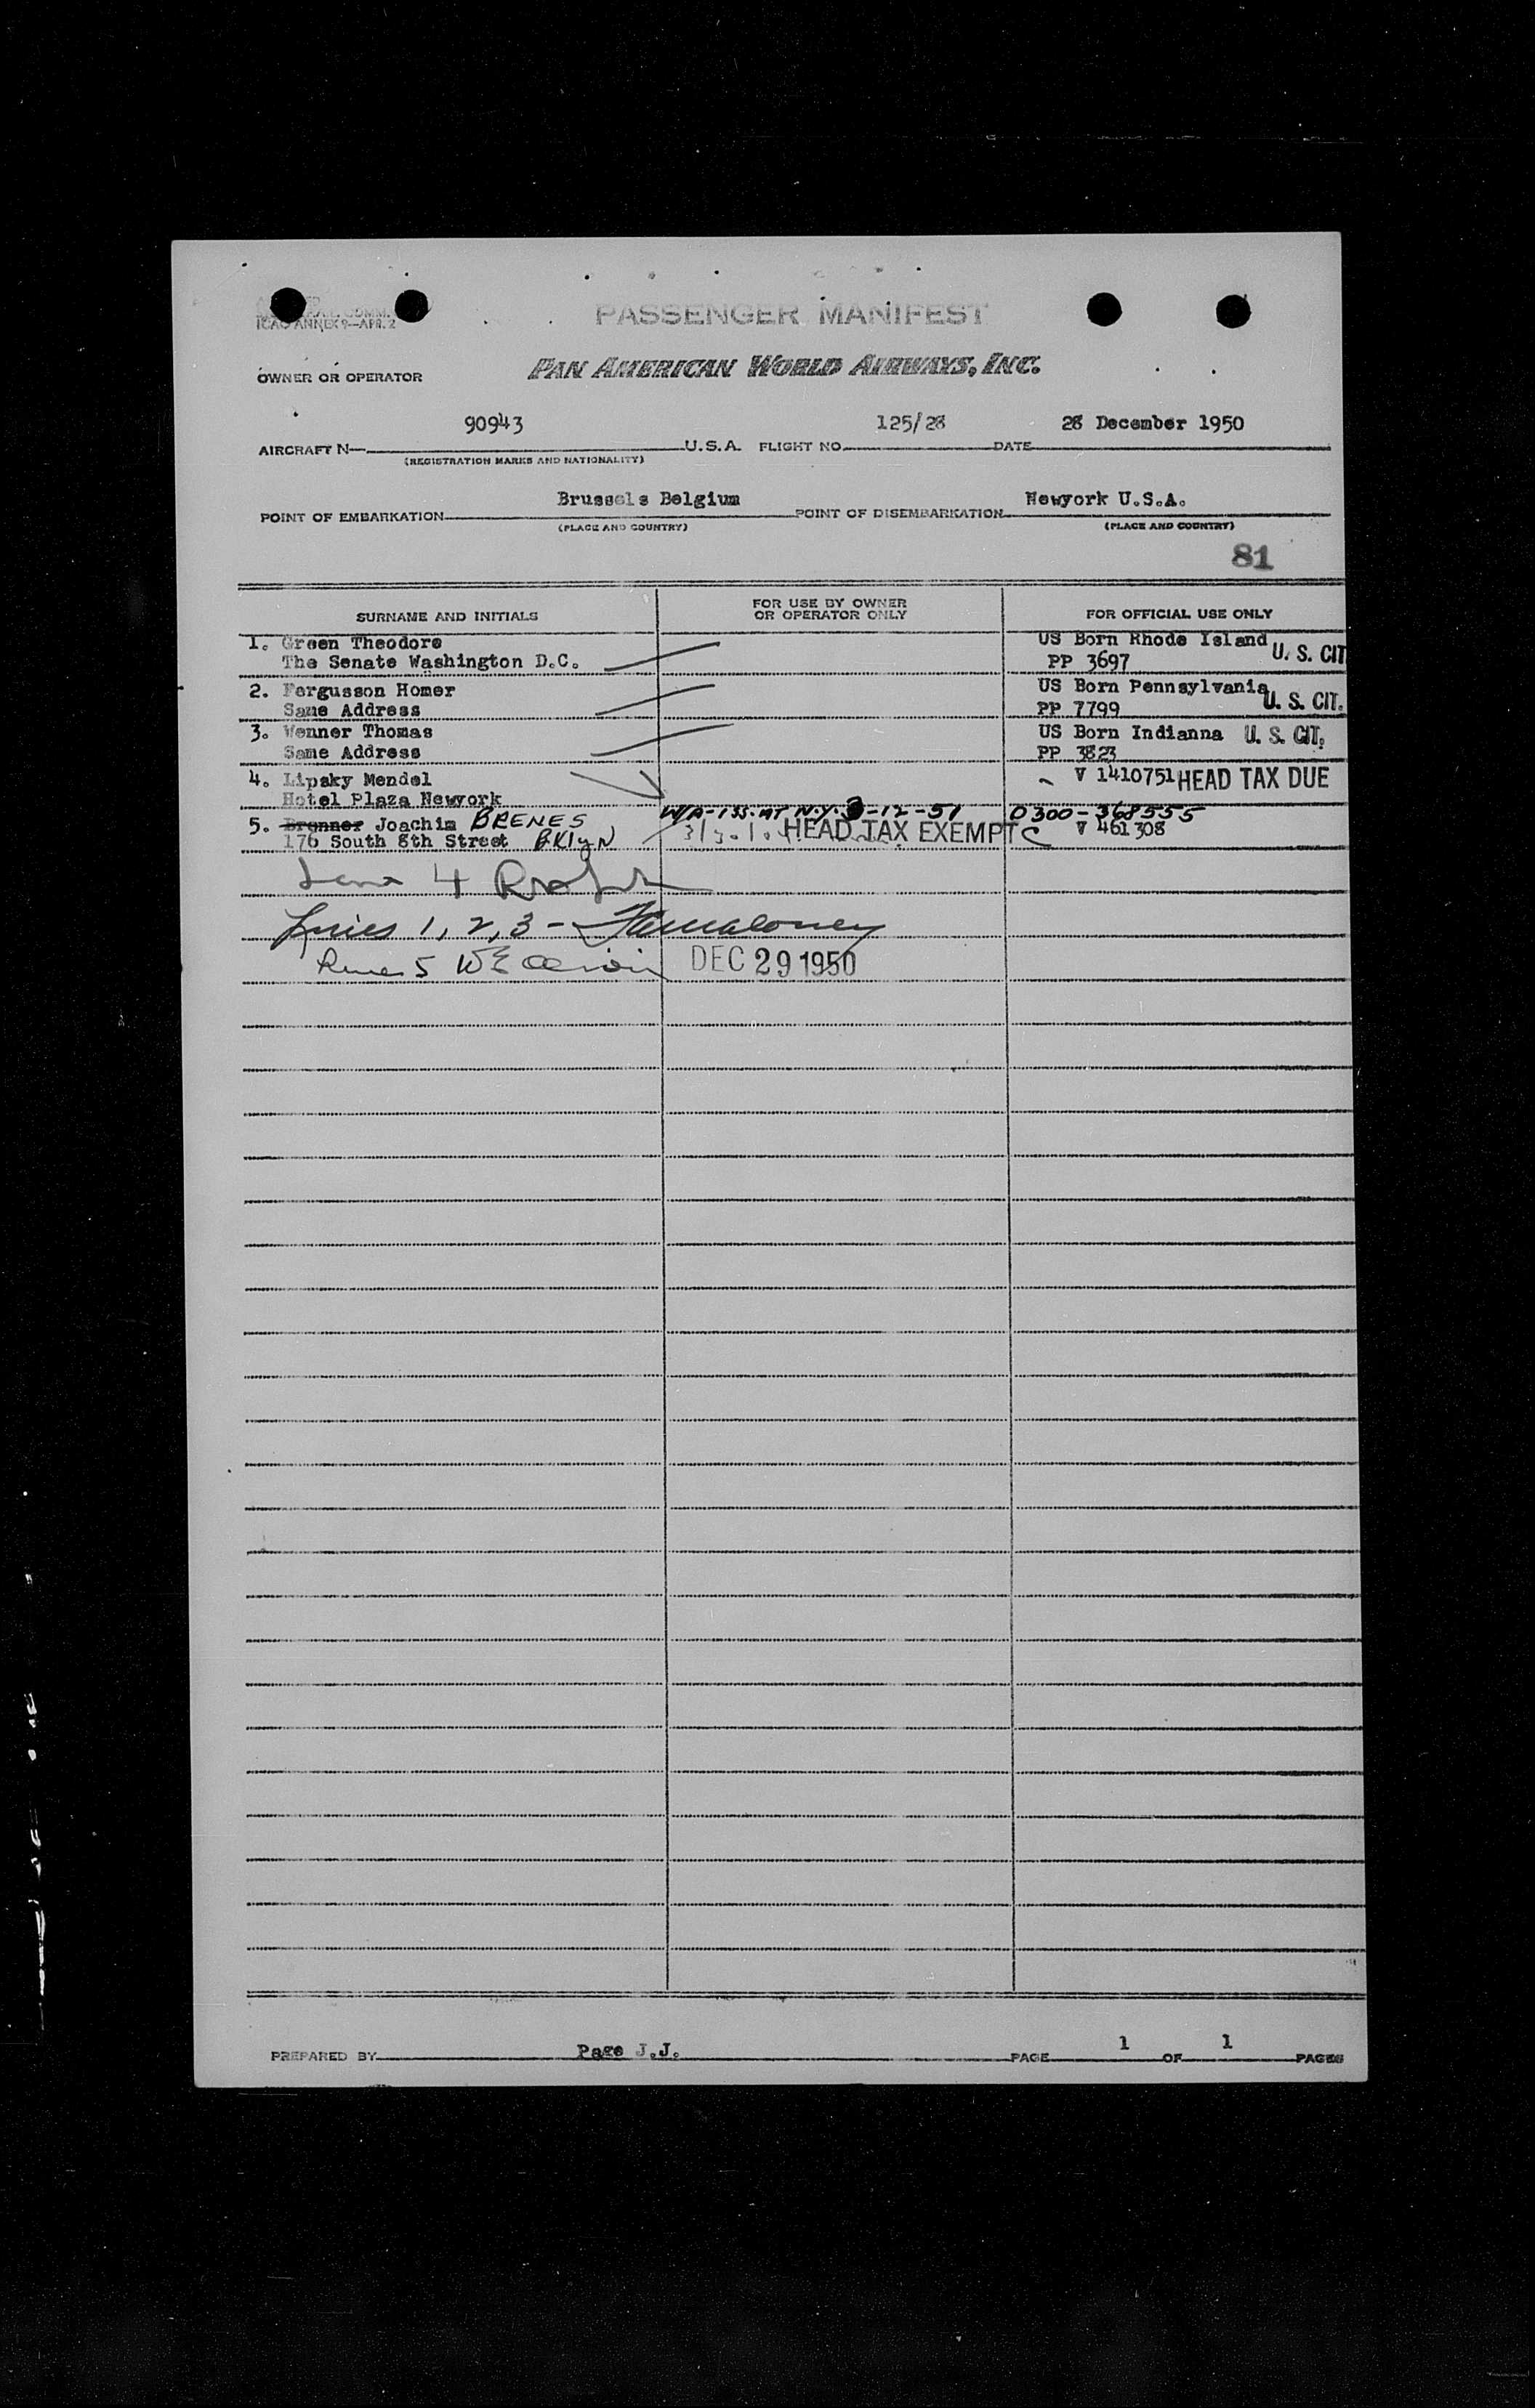 ICAO ANNEX 9—APR. 2
PASSENGER MANIFEST
OWNER OR OPERATOR
PAN AMERICAN WORLD AIRWAYS, INC.
90943 125/28 28 December 1950
AIRCRAFT N— U.S.A. FLIGHT NO. DATE
(REGISTRATION MARKS AND NATIONALITY)
Brussels Belgium Newyork U.S.A.
POINT OF EMBARKATION POINT OF DISEMBARKATION
(PLACE AND COUNTRY) (PLACE AND COUNTRY)
81
SURNAME AND INITIALS FOR USE BY OWNER OR OPERATOR ONLY FOR OFFICIAL USE ONLY
1. Green Theodore US Born Rhode Island U. S. CIT
The Senate Washington D.C. PP 3697
2. Fergusson Homer US Born Pennsylvania U. S. CIT.
Same Address PP 7799
3. Wenner Thomas US Born Indianna U. S. CIT.
Same Address PP 3823
4. Lipsky Mendel V 1410751 HEAD TAX DUE
Hotel Plaza Newyork
W/A-ISS. AT N.Y. 3-12-51 0300-368555
5. Brenner Joachim BRENES V 461308
176 South 8th Street BKlyN HEAD TAX EXEMPT
4
Lines 1, 2, 3 - Maloney
5 DEC 29 1950
PREPARED BY Page J.J. PAGE 1 OF 1 PAGES